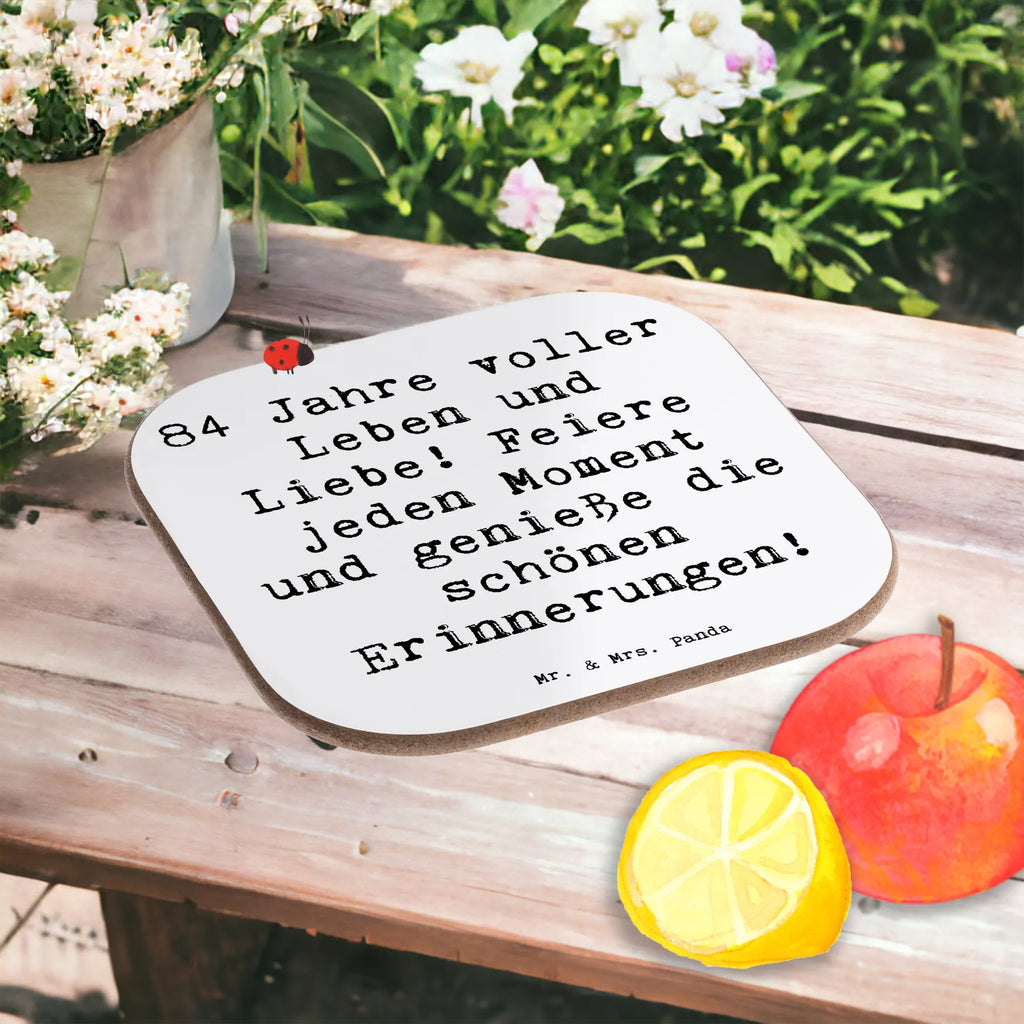 84 Jahre voller
Leben und
Liebe! Feiere
jeden Moment
und genieße die
schönen
Erinnerungen!
Mr. & Mrs. Panda